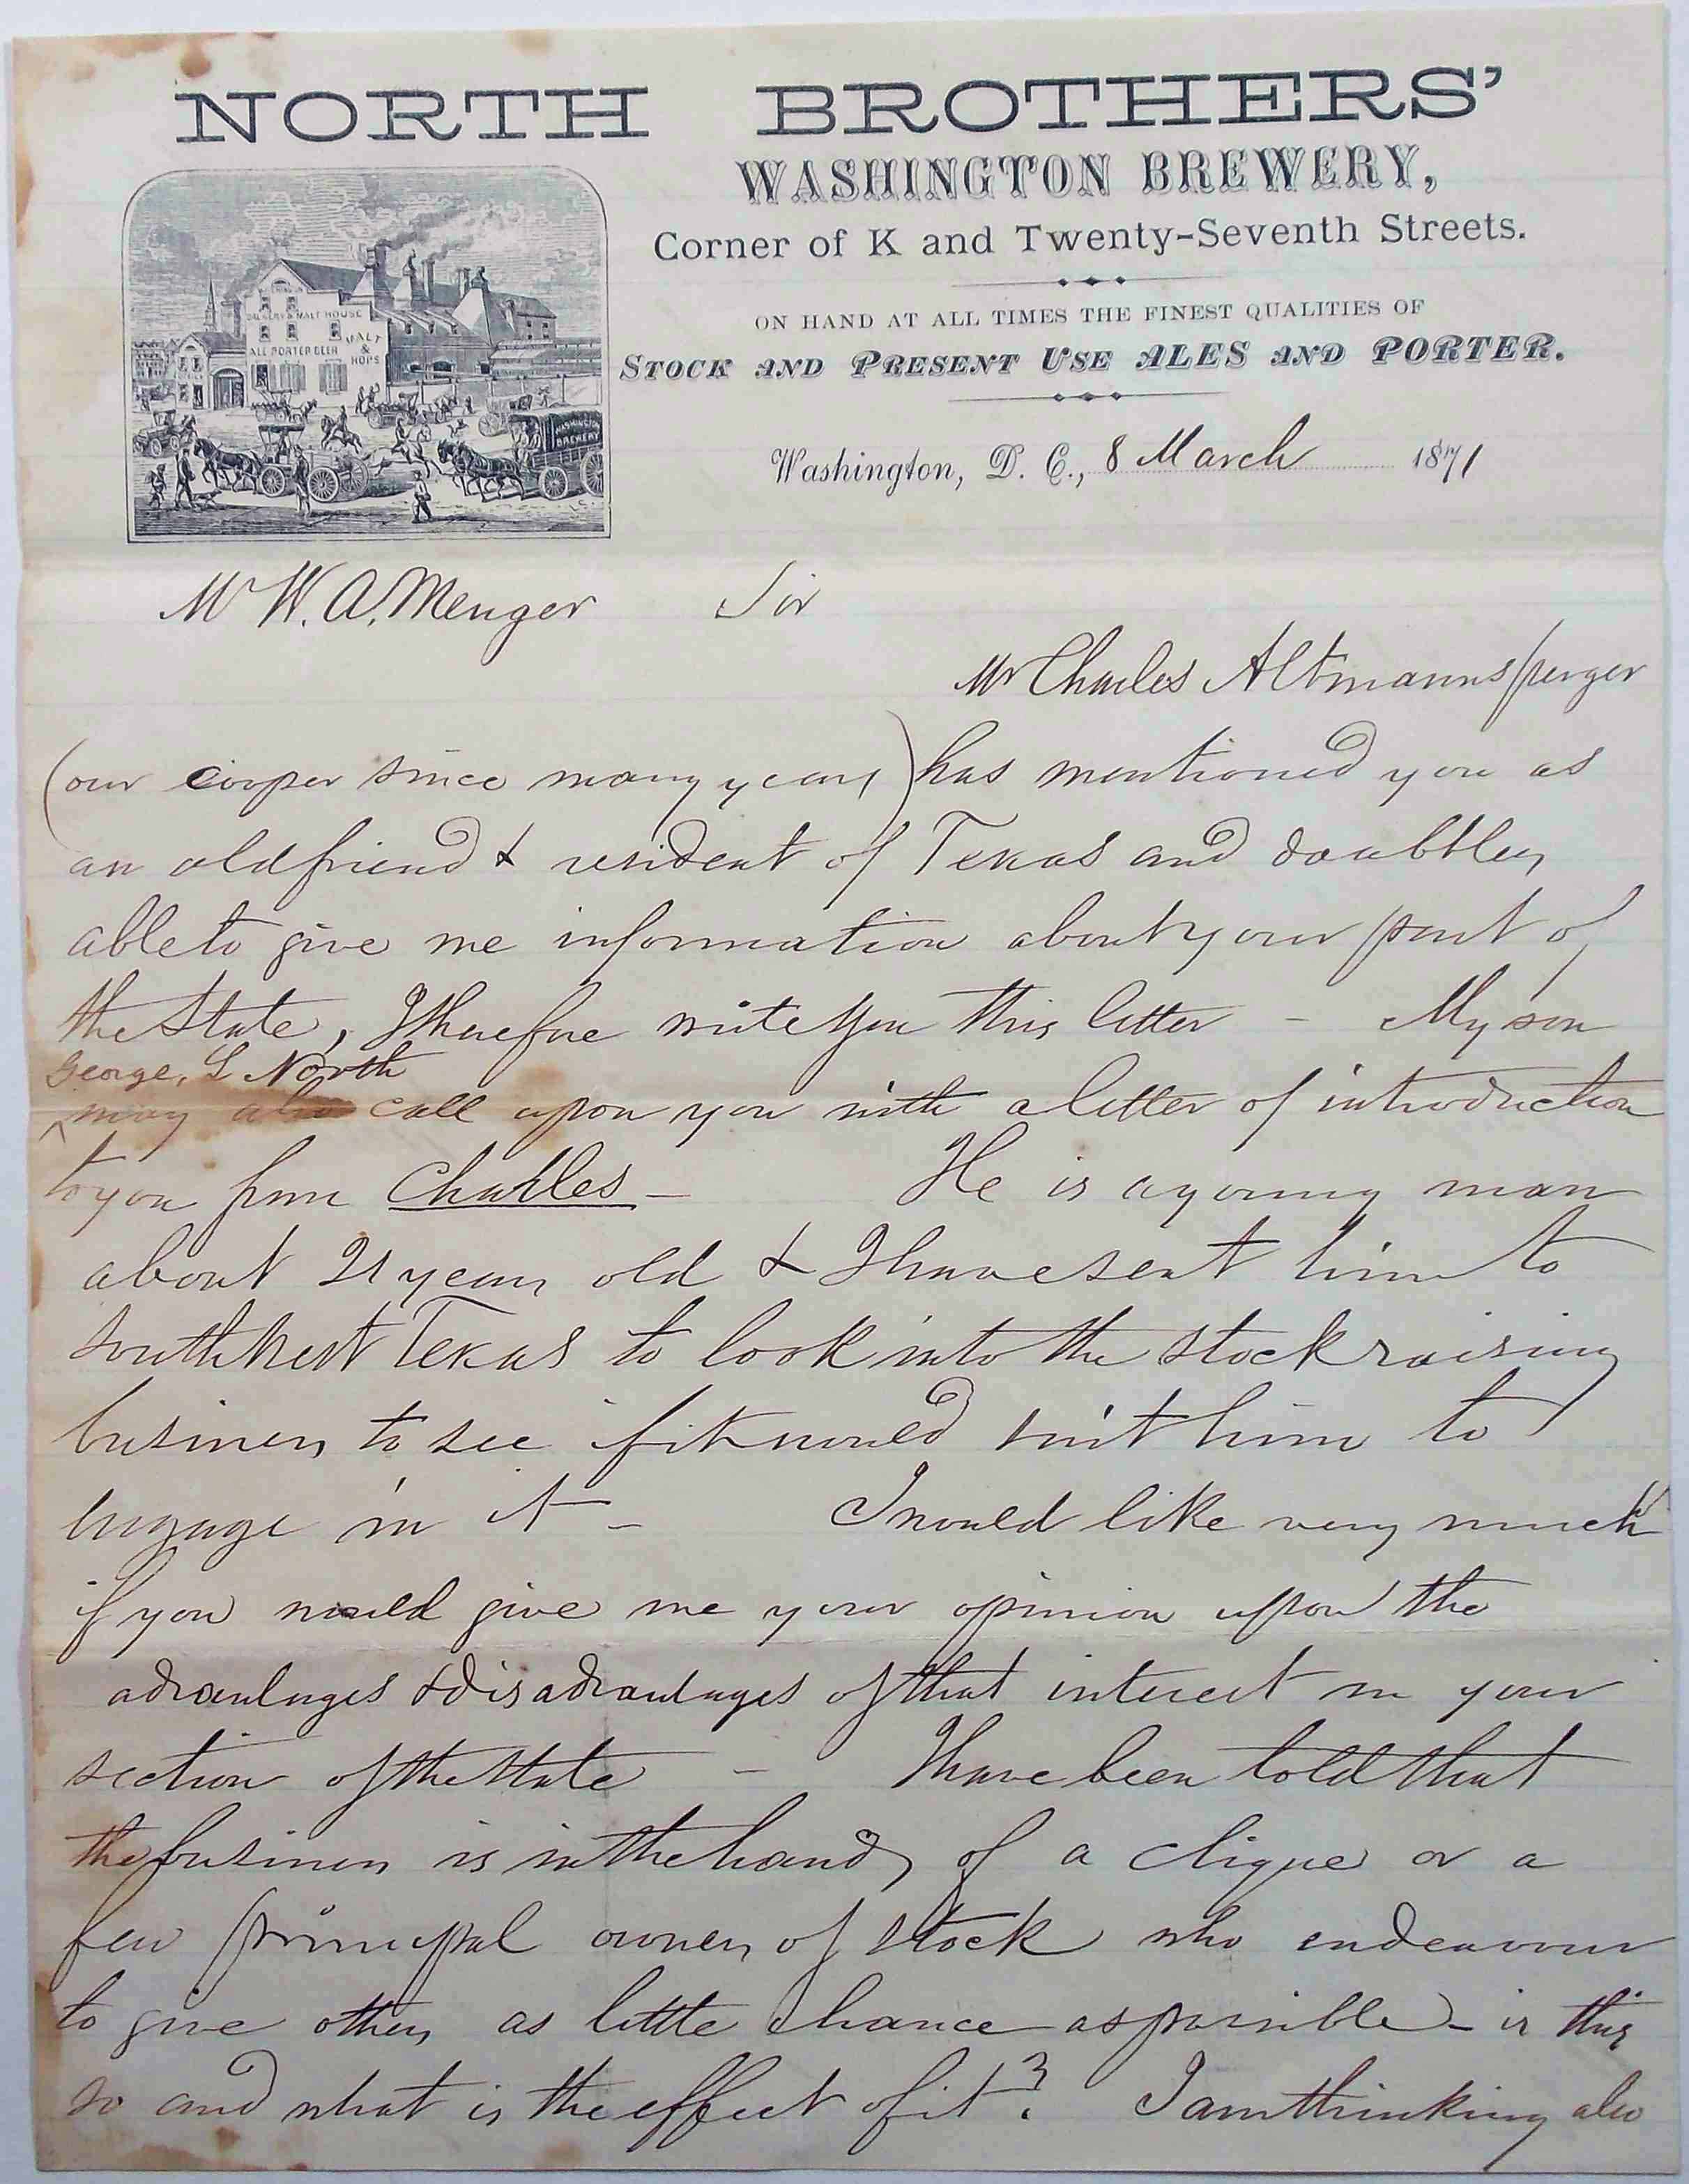 NORTH BROTHERS'
WASHINGTON BREWERY,
Corner of K and Twenty-Seventh Streets.
ON HAND AT ALL TIMES THE FINEST QUALITIES OF
STOCK AND PRESENT USE ALES AND PORTER.
BREWERY & MALT HOUSE
ALE PORTER BEER
MALT
&
HOPS
WASHINGTON
BREWERY
Washington, D. C., 8 March 1871
Mr W. A. Menger Sir
Mr Charles Altmannsperger
(our cooper since many years) has mentioned you as
an old friend & resident of Texas and doubtless
able to give me information about your part of
the State, I therefore write you this letter - My son
George, L North
^ may also call upon you with a letter of introduction
to you from Charles -
He is a young man
about 21 years old & I have sent him to
South West Texas to look into the stock raising
business to see if it would suit him to
engage in it - I would like very much
if you would give me your opinion upon the
advantages & disadvantages of that interest in your
section of the State - I have been told that
the business is in the hands of a clique or a
few principal owners of stock who endeavour
to give others as little chance as possible - is this
so and what is the effect of it? I am thinking also